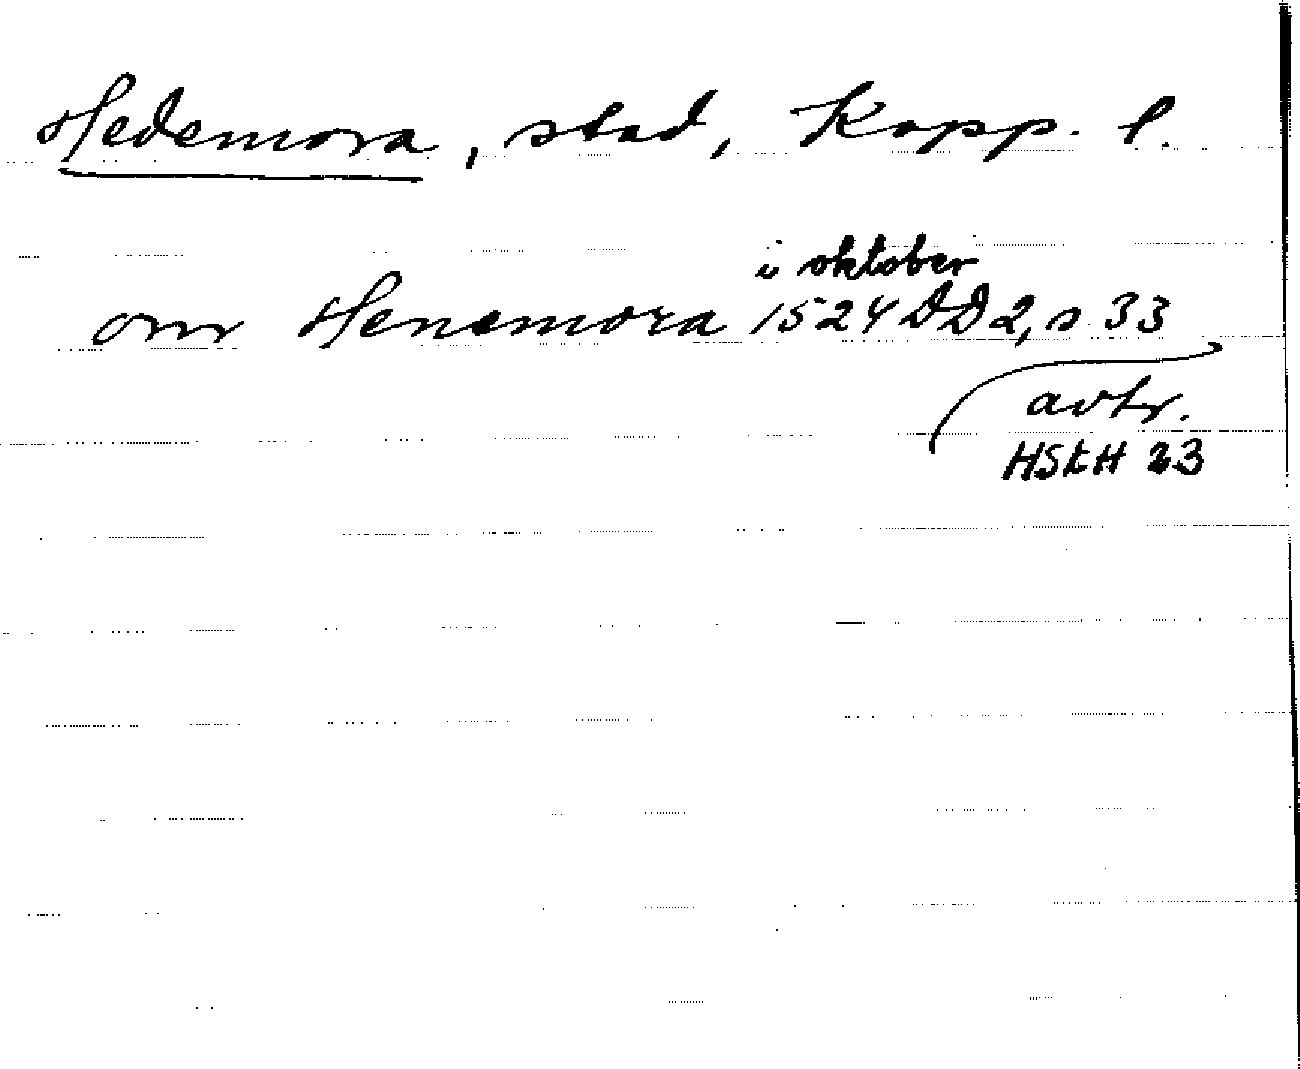 Hedemora, stad, Kopp. l.
i oktober
om Henemora 1524 DD2, s 33
avtr.
HSkH 23